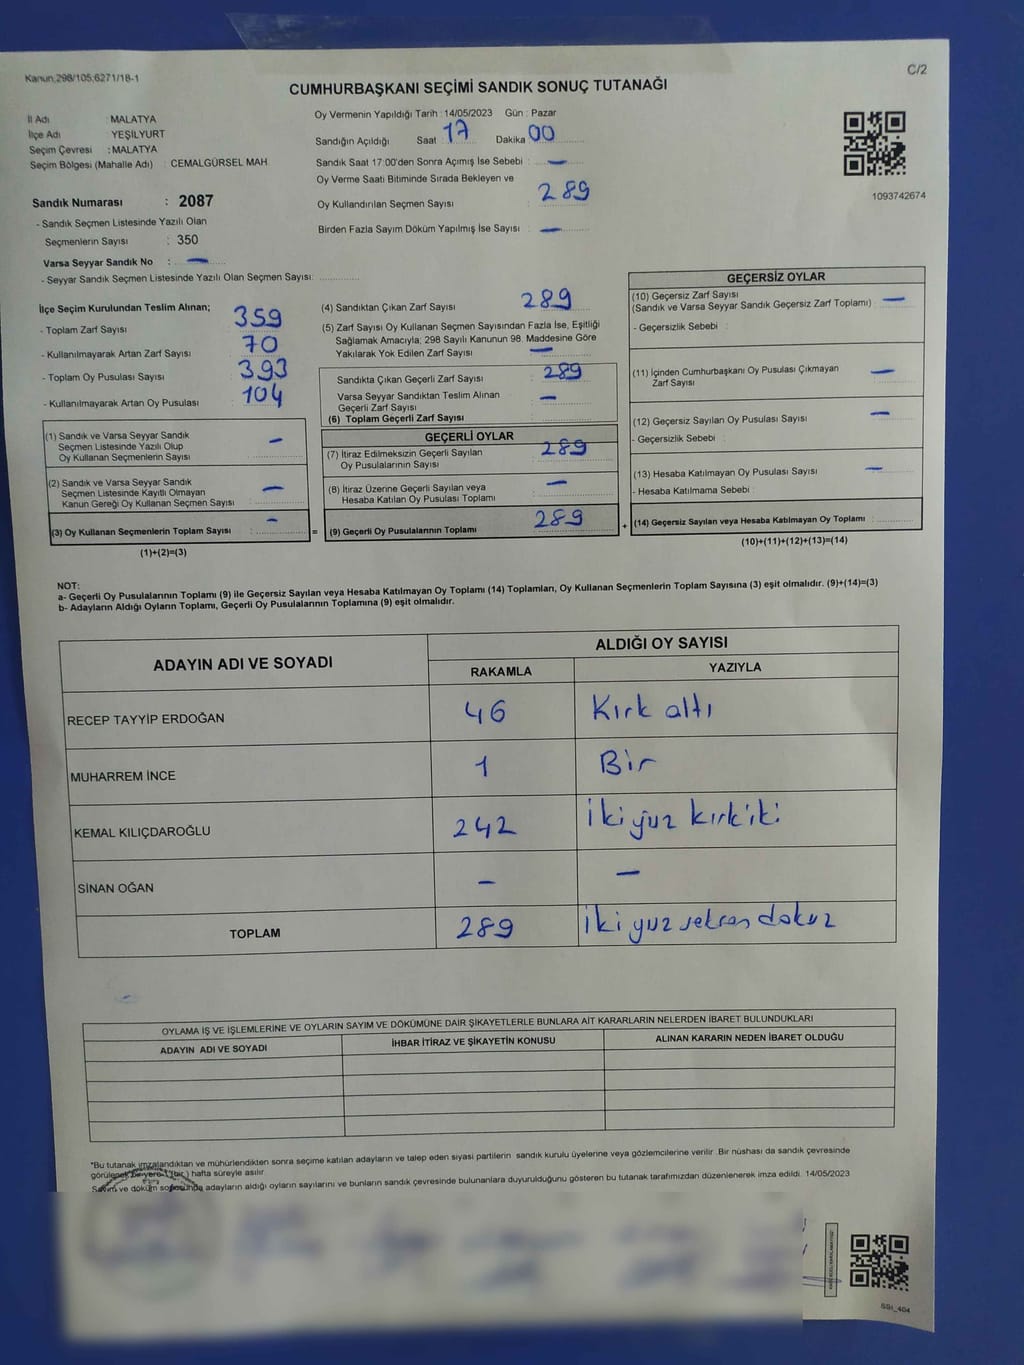 Kanun:298/105;6271/18-1
C/2
CUMHURBAŞKANI SEÇİMİ SANDIK SONUÇ TUTANAĞI
İl Adı : MALATYA
İlçe Adı : YEŞİLYURT
Seçim Çevresi : MALATYA
Seçim Bölgesi (Mahalle Adı) : CEMALGÜRSEL MAH.
Sandık Numarası : 2087
- Sandık Seçmen Listesinde Yazılı Olan
Seçmenlerin Sayısı : 350
Varsa Seyyar Sandık No : —
- Seyyar Sandık Seçmen Listesinde Yazılı Olan Seçmen Sayısı:
Oy Vermenin Yapıldığı Tarih : 14/05/2023 Gün : Pazar
Sandığın Açıldığı Saat : 17 Dakika : 00
Sandık Saat 17:00'den Sonra Açımış İse Sebebi : —
Oy Verme Saati Bitiminde Sırada Bekleyen ve
Oy Kullandırılan Seçmen Sayısı : 289
Birden Fazla Sayım Döküm Yapılmış İse Sayısı : —
1093742674
İlçe Seçim Kurulundan Teslim Alınan;
- Toplam Zarf Sayısı : 359
- Kullanılmayarak Artan Zarf Sayısı : 70
- Toplam Oy Pusulası Sayısı : 393
- Kullanılmayarak Artan Oy Pusulası : 104
(1) Sandık ve Varsa Seyyar Sandık
Seçmen Listesinde Yazılı Olup
Oy Kullanan Seçmenlerin Sayısı : —
(2) Sandık ve Varsa Seyyar Sandık
Seçmen Listesinde Kayıtlı Olmayan
Kanun Gereği Oy Kullanan Seçmen Sayısı : —
(3) Oy Kullanan Seçmenlerin Toplam Sayısı : —
(1)+(2)=(3)
=
(4) Sandıktan Çıkan Zarf Sayısı : 289
(5) Zarf Sayısı Oy Kullanan Seçmen Sayısından Fazla İse, Eşitliği
Sağlamak Amacıyla; 298 Sayılı Kanunun 98. Maddesine Göre
Yakılarak Yok Edilen Zarf Sayısı : —
Sandıkta Çıkan Geçerli Zarf Sayısı : 289
Varsa Seyyar Sandıktan Teslim Alınan
Geçerli Zarf Sayısı : —
(6) Toplam Geçerli Zarf Sayısı :
GEÇERLİ OYLAR
(7) İtiraz Edilmeksizin Geçerli Sayılan
Oy Pusulalarının Sayısı : 289
(8) İtiraz Üzerine Geçerli Sayılan veya
Hesaba Katılan Oy Pusulası Toplamı : —
(9) Geçerli Oy Pusulalarının Toplamı : 289
+
GEÇERSİZ OYLAR
(10) Geçersiz Zarf Sayısı
(Sandık ve Varsa Seyyar Sandık Geçersiz Zarf Toplamı) : —
- Geçersizlik Sebebi :
(11) İçinden Cumhurbaşkanı Oy Pusulası Çıkmayan
Zarf Sayısı : —
(12) Geçersiz Sayılan Oy Pusulası Sayısı : —
- Geçersizlik Sebebi :
(13) Hesaba Katılmayan Oy Pusulası Sayısı : —
- Hesaba Katılmama Sebebi :
(14) Geçersiz Sayılan veya Hesaba Katılmayan Oy Toplamı :
(10)+(11)+(12)+(13)=(14)
NOT:
a- Geçerli Oy Pusulalarının Toplamı (9) ile Geçersiz Sayılan veya Hesaba Katılmayan Oy Toplamı (14) Toplamları, Oy Kullanan Seçmenlerin Toplam Sayısına (3) eşit olmalıdır. (9)+(14)=(3)
b- Adayların Aldığı Oyların Toplamı, Geçerli Oy Pusulalarının Toplamına (9) eşit olmalıdır.
ADAYIN ADI VE SOYADI ALDIĞI OY SAYISI
RAKAMLA YAZIYLA
RECEP TAYYİP ERDOĞAN 46 Kırk altı
MUHARREM İNCE 1 Bir
KEMAL KILIÇDAROĞLU 242 İki yüz kırk iki
SİNAN OĞAN — —
TOPLAM 289 İki yuz seksen dokuz
OYLAMA İŞ VE İŞLEMLERİNE VE OYLARIN SAYIM VE DÖKÜMÜNE DAİR ŞİKAYETLERLE BUNLARA AİT KARARLARIN NELERDEN İBARET BULUNDUKLARI
ADAYIN ADI VE SOYADI İHBAR İTİRAZ VE ŞİKAYETİN KONUSU ALINAN KARARIN NEDEN İBARET OLDUĞU
*Bu tutanak imzalandıktan ve mühürlendikten sonra seçime katılan adayların ve talep eden siyasi partilerin sandık kurulu üyelerine veya gözlemcilerine verilir. Bir nüshası da sandık çevresinde
görülen bir yere 1 (bir) hafta süreyle asılır.
Sayım ve döküm sonucunda adayların aldığı oyların sayılarını ve bunların sandık çevresinde bulunanlara duyurulduğunu gösteren bu tutanak tarafımızdan düzenlenerek imza edildi. 14/05/2023
SSI_404